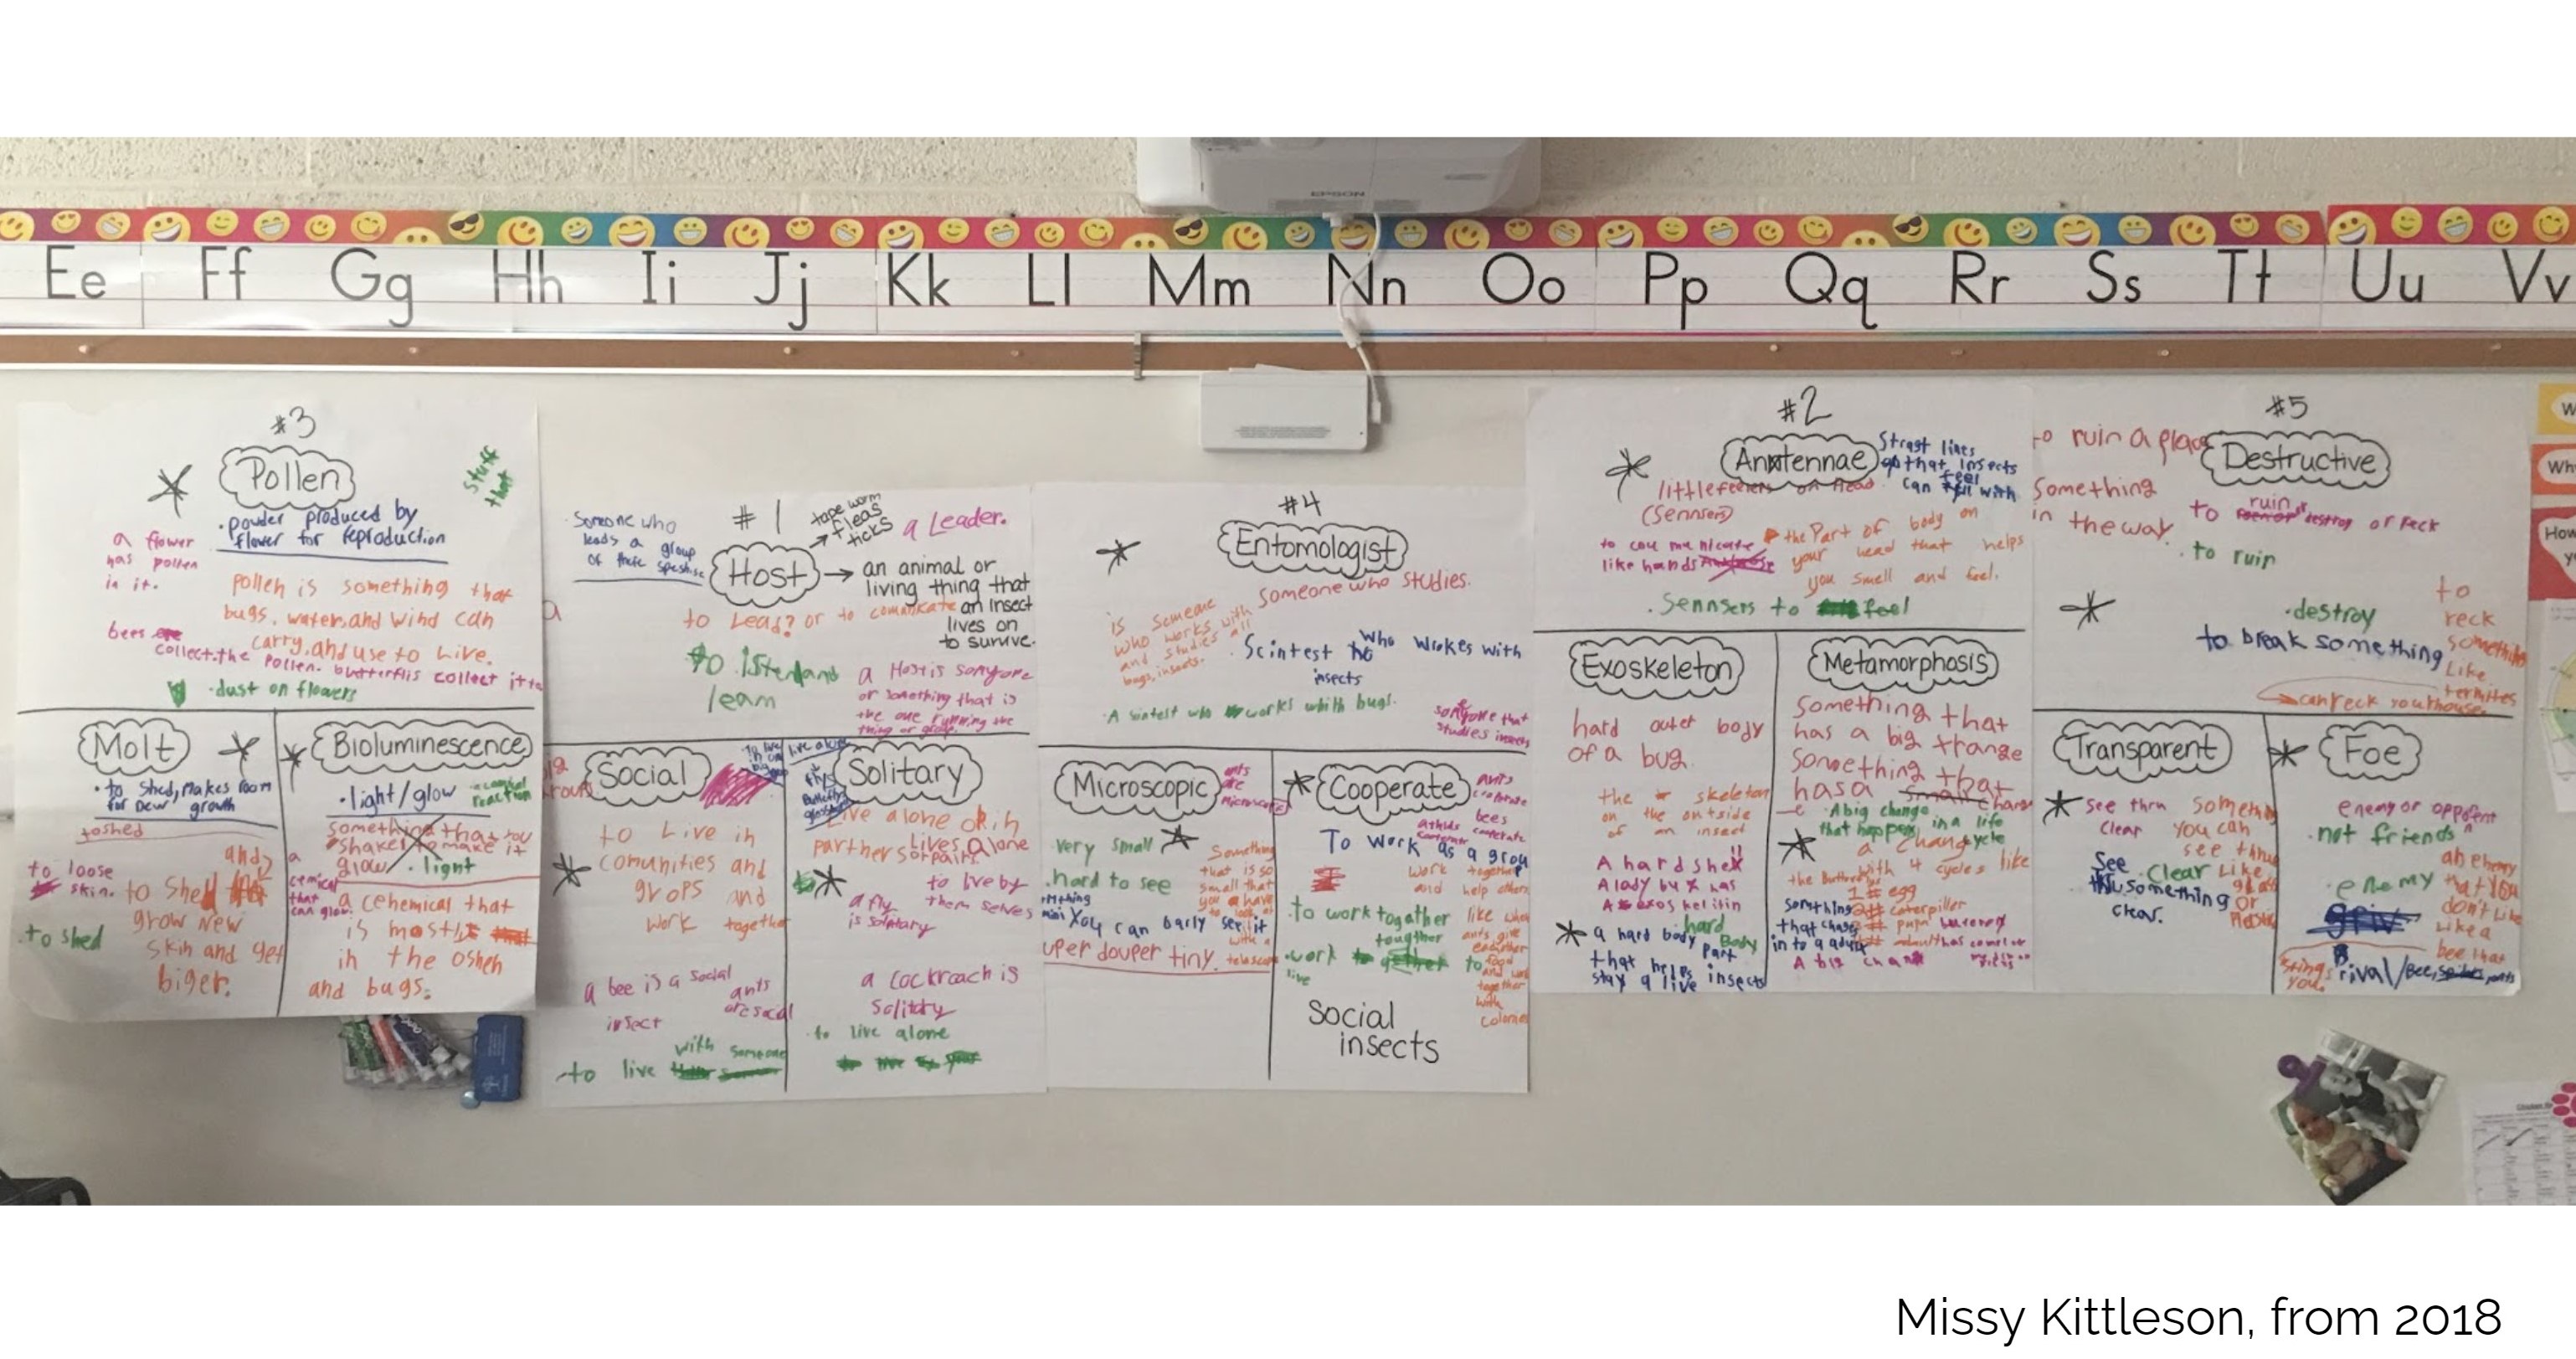 EPSON
Ee Ff Gg Hh Ii Jj Kk Ll Mm Nn Oo Pp Qq Rr Ss Tt Uu Vv
#3
Pollen
stuff
that
• powder produced by
flower for reproduction
a flower
has pollen
in it.
pollen is something that
bugs, water, and wind can
carry, and use to Live.
bees
collect the pollen. butterflis collect it to
• dust on flowers
Molt
• to shed, makes room
for new growth
to shed
to loose
skin.
to shed
and
grow new
skin and get
biger.
• to shed
Bioluminescence
• light/glow
reaction
something that you
shake to make it
glow
• light
a
cemical
that
can glow.
a cehemical that
is mostly
in the oshen
and bugs.
#1
Host
Someone who
leads a group
of there
tape worm
fleas
ticks
a Leader.
→ an animal or
living thing that
an insect
lives on
to survive.
to Lead? or to comunicate
to listen and
learn
a Host is somyone
or something that is
the one running the
thing or group.
Social
to Live in
comunities and
grops and
work together
a bee is a social
insect
ants
are social
to live with someone
Solitary
live alone
Live alone or in
partners or pairs.
Lives alone
to live by
them selves
a fly
is solitary
a cockroach is
solitary
• to live alone
#4
Entomologist
Someone who studies.
is someone
who works with
and studies all
bugs, insects.
• Scintest who wrokes with
insects
• A sintest who works whith bugs.
somyone that
studies insects
Microscopic
ants
are
microscopic
• very small
• hard to see
You can barly see it
super douper tiny.
Something
that is so
small that
you have
to look at
it
with a
telascope
Cooperate
ants
bees
To work as a group
work together
and help others
like when
ants give
food
and work
together
with
• to work together
tougther
• work to
live
Social
insects
#2
Antennae
Strast lines
that insects
can feel with
little feelers on head
(sennsers)
like hands
the Part of body on
your head that helps
you smell and feel.
• Sennsers to feel
Exoskeleton
hard outer body
of a bug.
the skeleton
on the outside
of an insect
A hard shell
A lady bug has
a hard body
hard
Body
part
that helps
stay alive insects
Metamorphosis
something that
has a big change
Something that
has a small change
• A big change in a life
that happens cycle
a change
with 4 cycles like
1# egg
caterpillar
Something
that changes
in to a adult
A big change
#5
Destructive
to ruin a place
Something
in the way
to ruin or destroy or reck
• to ruin
• destroy
to break something
to
reck
something
Like
termites
can reck your house.
Transparent
see thru
clear
something
you can
see thru
• Clear Like
glass
or
Plastic
See
thru something
clear.
Foe
enemy or opponent
• not friends
• enemy
an enemy
that you
don't Like
Like a
bee that
stings
you.
rival/Bee,
Missy Kittleson, from 2018